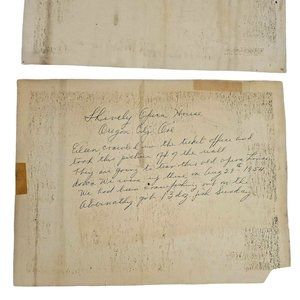 Shively Opera House
Oregon City Ore
Eileen crawled in the ticket office and
took this picture off of the wall
They are going to tear this old opera house
down. We were up there on Aug 28 - 1954
We had been everything out on the
Abernathy job 13 dy job Sunday